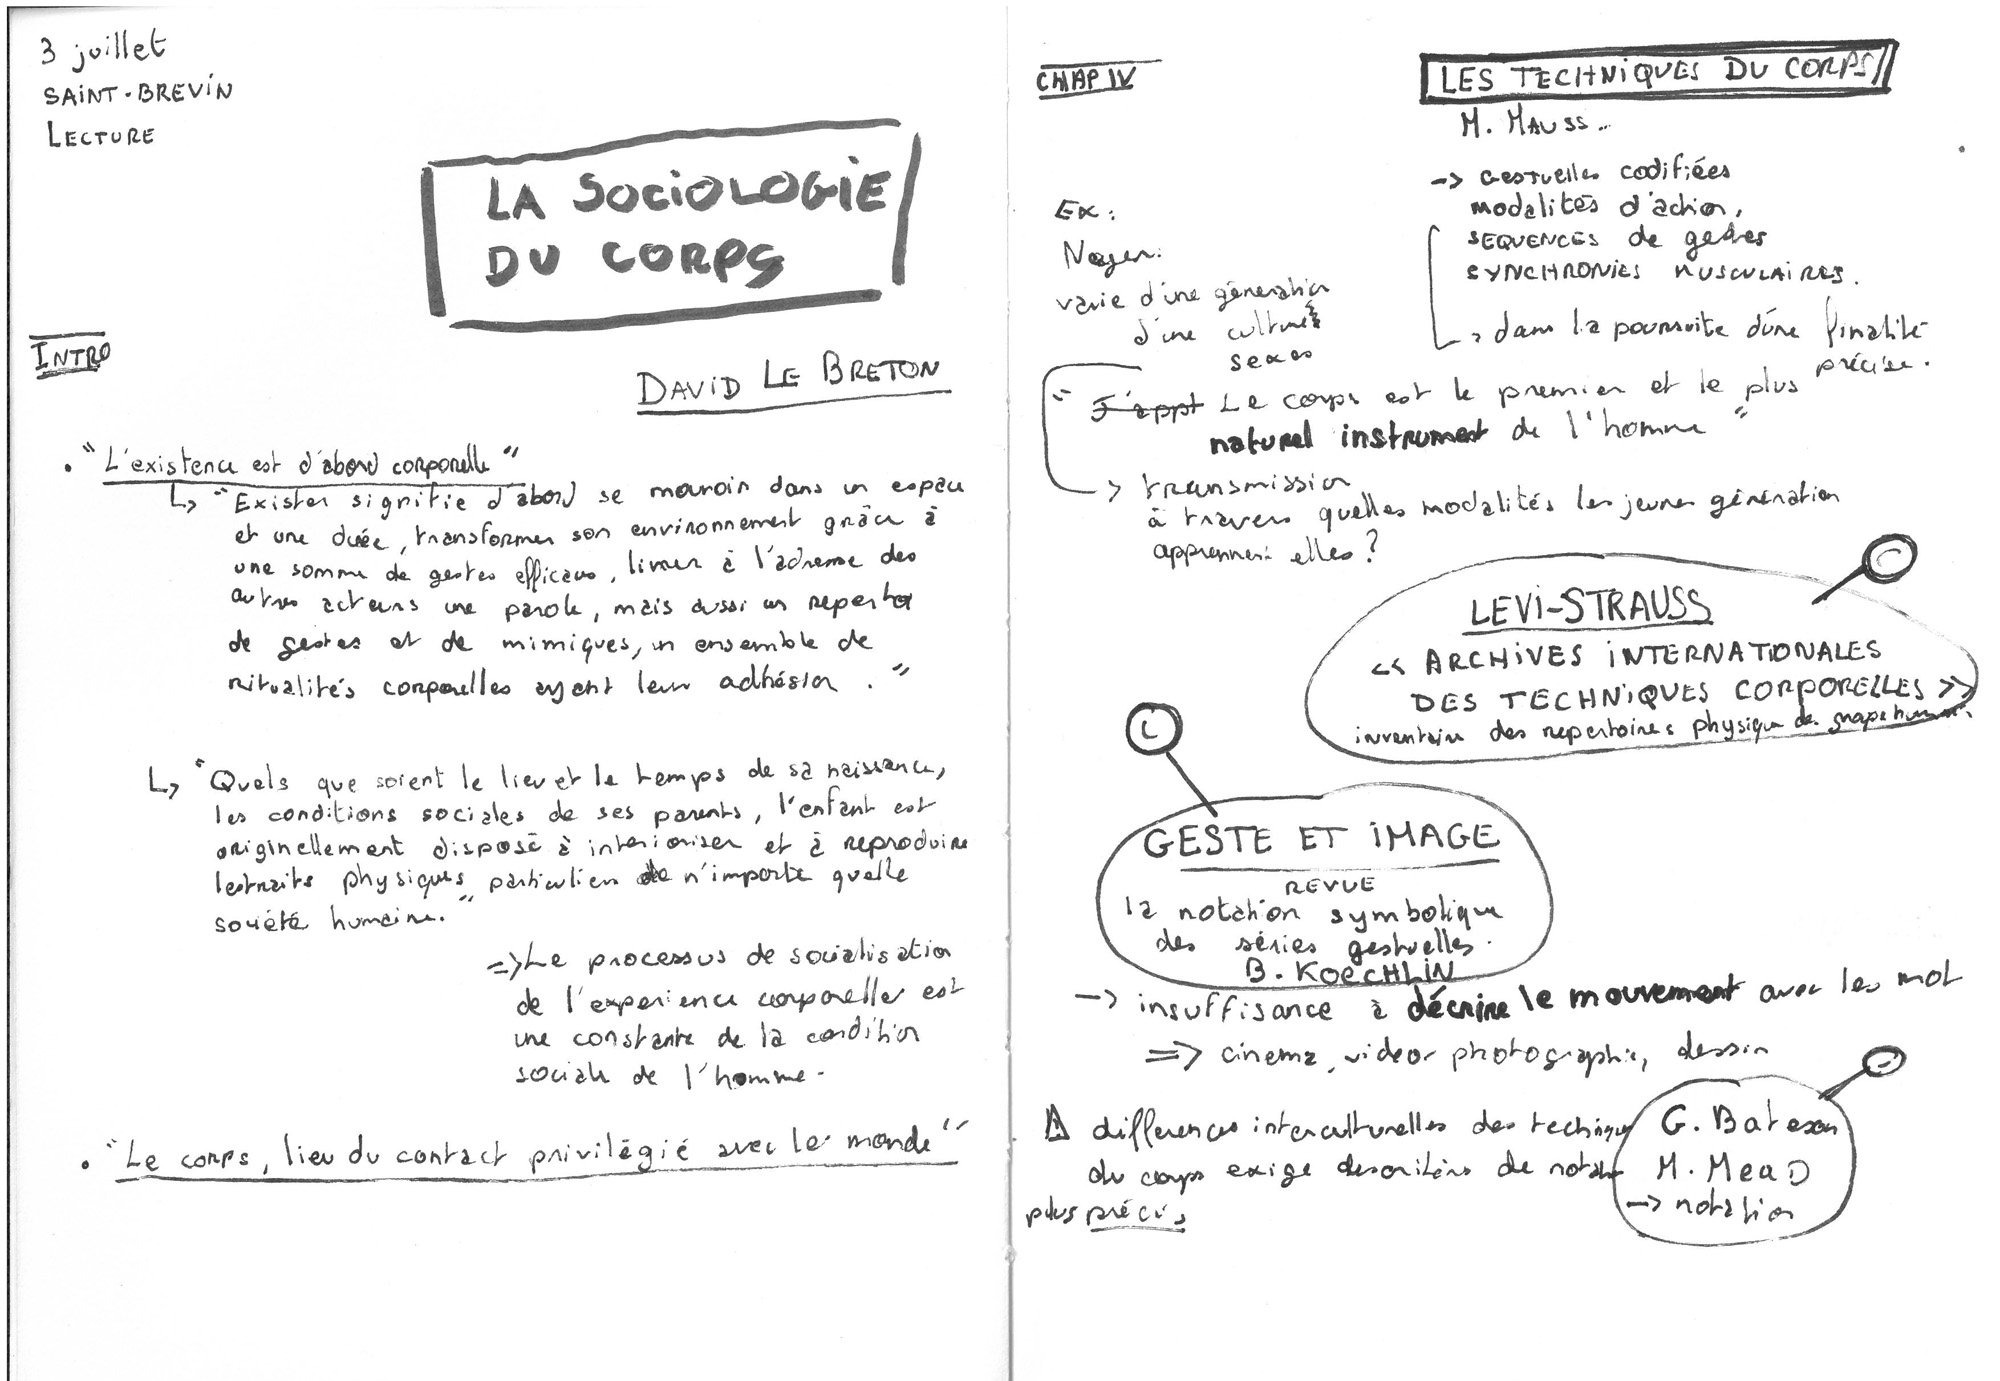 3 juillet
SAINT-BREVIN
LECTURE
LA SOCIOLOGIE
DU CORPS
INTRO
DAVID LE BRETON
• "L'existence est d'abord corporelle"
↳ "Exister signifie d'abord se mouvoir dans un espace
et une durée, transformer son environnement grâce à
une somme de gestes efficaces, livrer à l'adresse des
autres acteurs une parole, mais aussi un
de gestes et de mimiques, un ensemble de
ritualités corporelles ayant leur adhésion."
↳ "Quels que soient le lieu et le temps de sa naissance,
les conditions sociales de ses parents, l'enfant est
originellement disposé à intérioriser et à reproduire
les traits physiques particuliers de n'importe quelle
société humaine."
=> Le processus de socialisation
de l'experience corporelle est
une constante de la condition
sociale de l'homme.
• "Le corps, lieu du contact privilégié avec le monde"
CHAP IV
LES TECHNIQUES DU CORPS
M. MAUSS..
-> Gestuelles codifiées
modalités d'action,
SEQUENCES de gestes
SYNCHRONIES MUSCULAIRES.
-> dans la poursuite d'une finalité
précise.
Ex:
Nager:
varie d'une génération
d'une culture
sexes
" J'appt Le corps est le premier et le plus
naturel instrument de l'homme "
-> transmission
à travers quelles modalités les jeunes génération
apprennent elles?
LEVI-STRAUSS
<< ARCHIVES INTERNATIONALES
DES TECHNIQUES CORPORELLES >>
inventaire des repertoires physique de
GESTE ET IMAGE
REVUE
la notation symbolique
des séries gestuelles.
B. KOECHLIN
-> insuffisance à décrire le mouvement avec les mot
=> cinema, video, photographie, dessin
differences interculturelles des technique
du corps exige des critères de
plus précis
G. Bateson
M. MeaD
-> notation